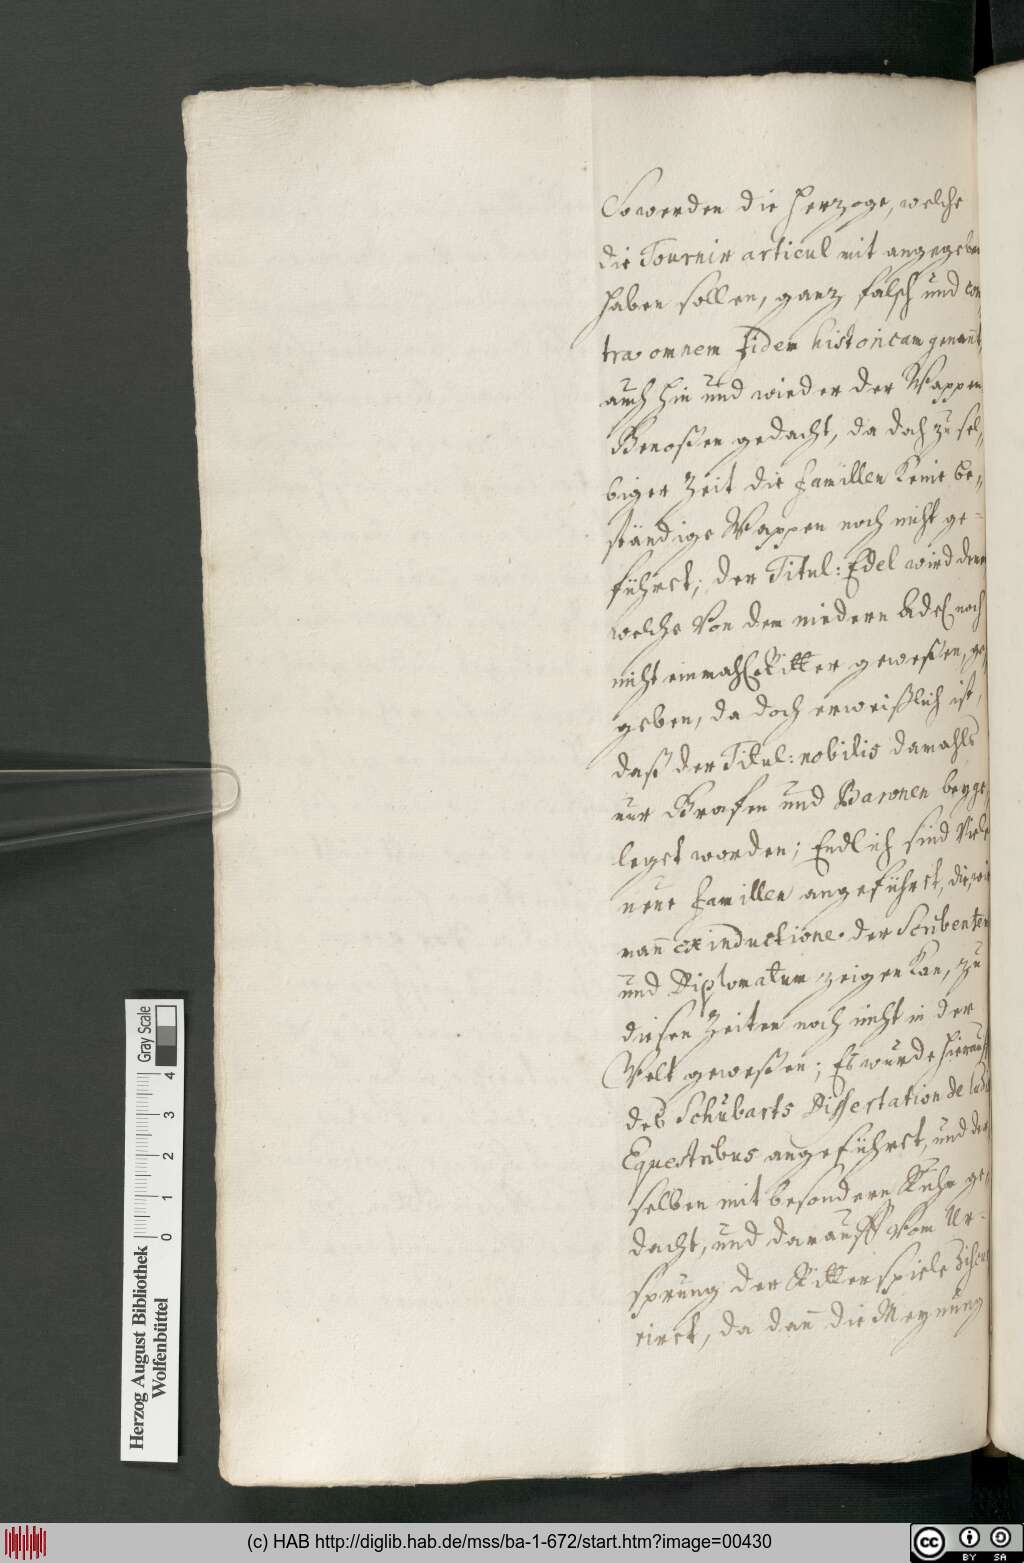 So werden die Herzoge, welche
die Tournir articul mit angegeben
haben sollen, ganz falsch und con
tra omnem fidem historicam genannt,
auch hin und wieder der Wappen
Genoßen gedacht, da doch zu sel,,
biger Zeit die famillen Keine be,,
ständige Wappen noch nicht ge=
führet; der Titul: Edel wird denen
welche von dem niedern Adel noch
nicht einmahl Ritter geweßen, ge,,
geben, da doch erweißlich ist,
daß der Titul: nobilis damahls
nur Grafen und Baronen beyge,,
leget worden; Endlich sind Viele
neue famillen angeführet, die, wie
man̄ ex inductione der Scribenten
und Diplomatum zeigen Kan, zu
diesen Zeiten noch nicht in der
Welt geweßen; Es wurde hierauf
des Schubarts Dissertation de ludis
Equestribus angeführet, und der,,
selben mit besondern Ruhm ge,,
dacht, und darauff vom Ur-
sprung der Ritterspiele discur
riret, da dan̄ die Meynung
Herzog August Bibliothek
Wolfenbüttel
0 1 2 3 4
Gray Scale
(c) HAB http://diglib.hab.de/mss/ba-1-672/start.htm?image=00430
cc BY SA